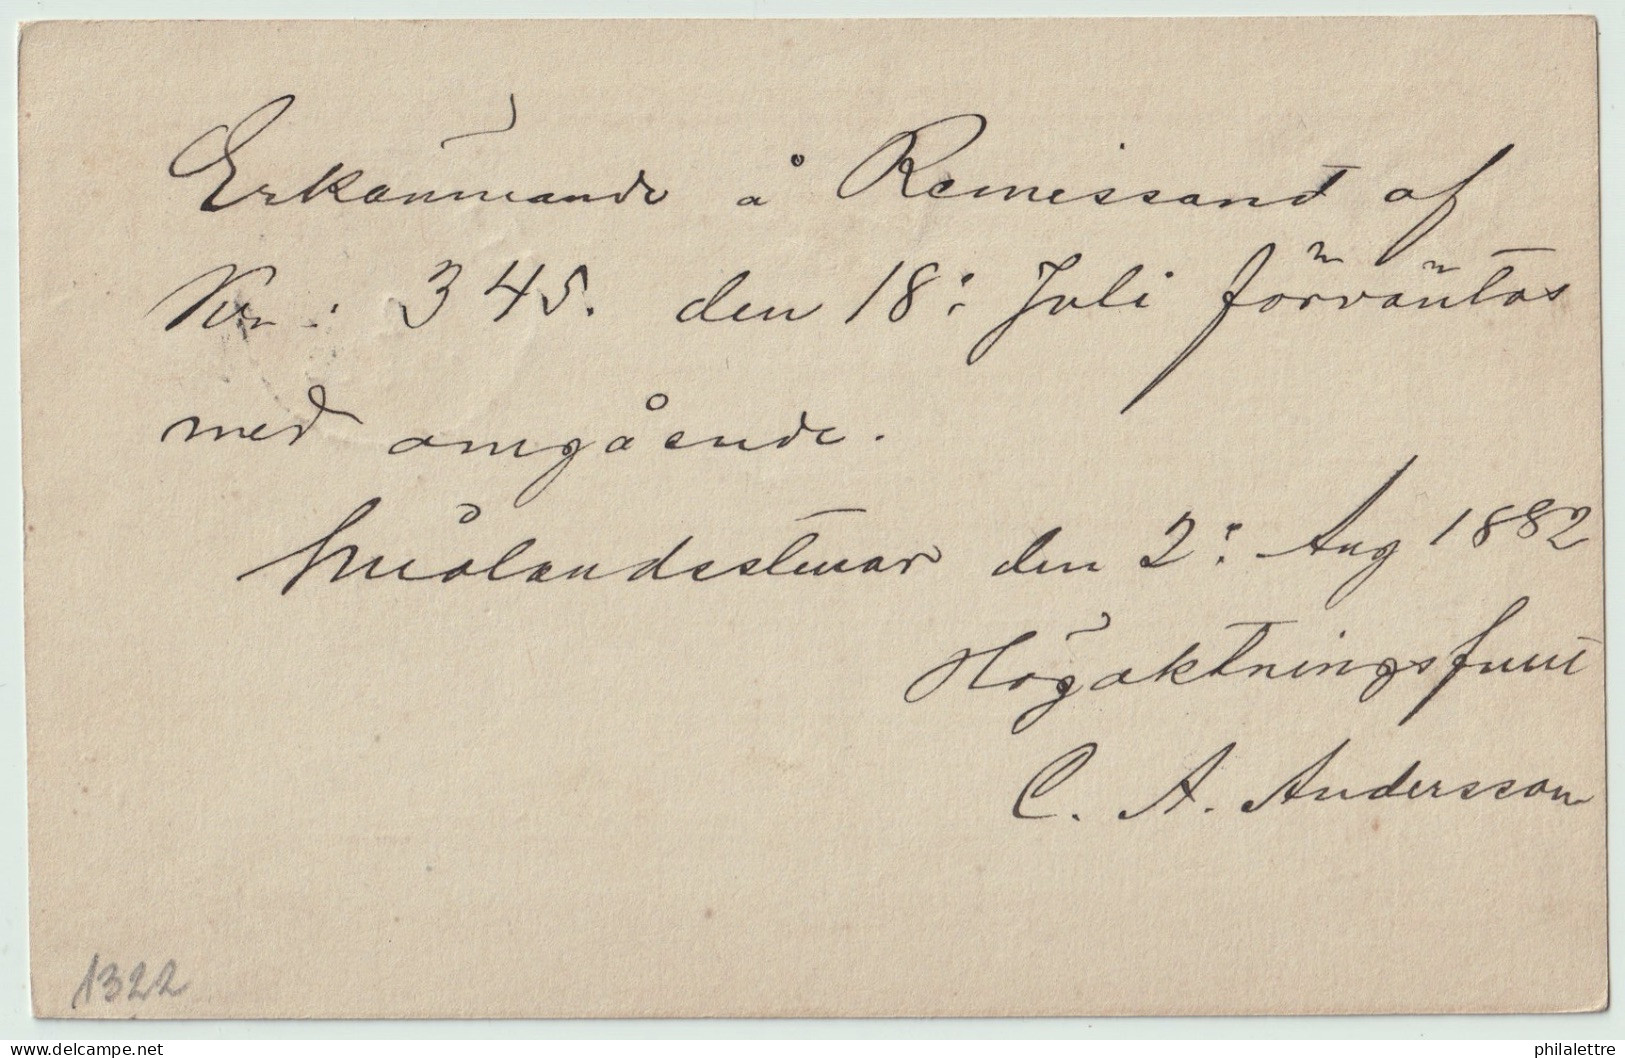 Erkännande å Remissand af
Kr: 345. den 18: Juli förväntas
med omgående.
Smålandsstenar den 2: Aug 1882
Högaktningsfullt
C. A. Andersson
1322
delcampe.net
philalettre